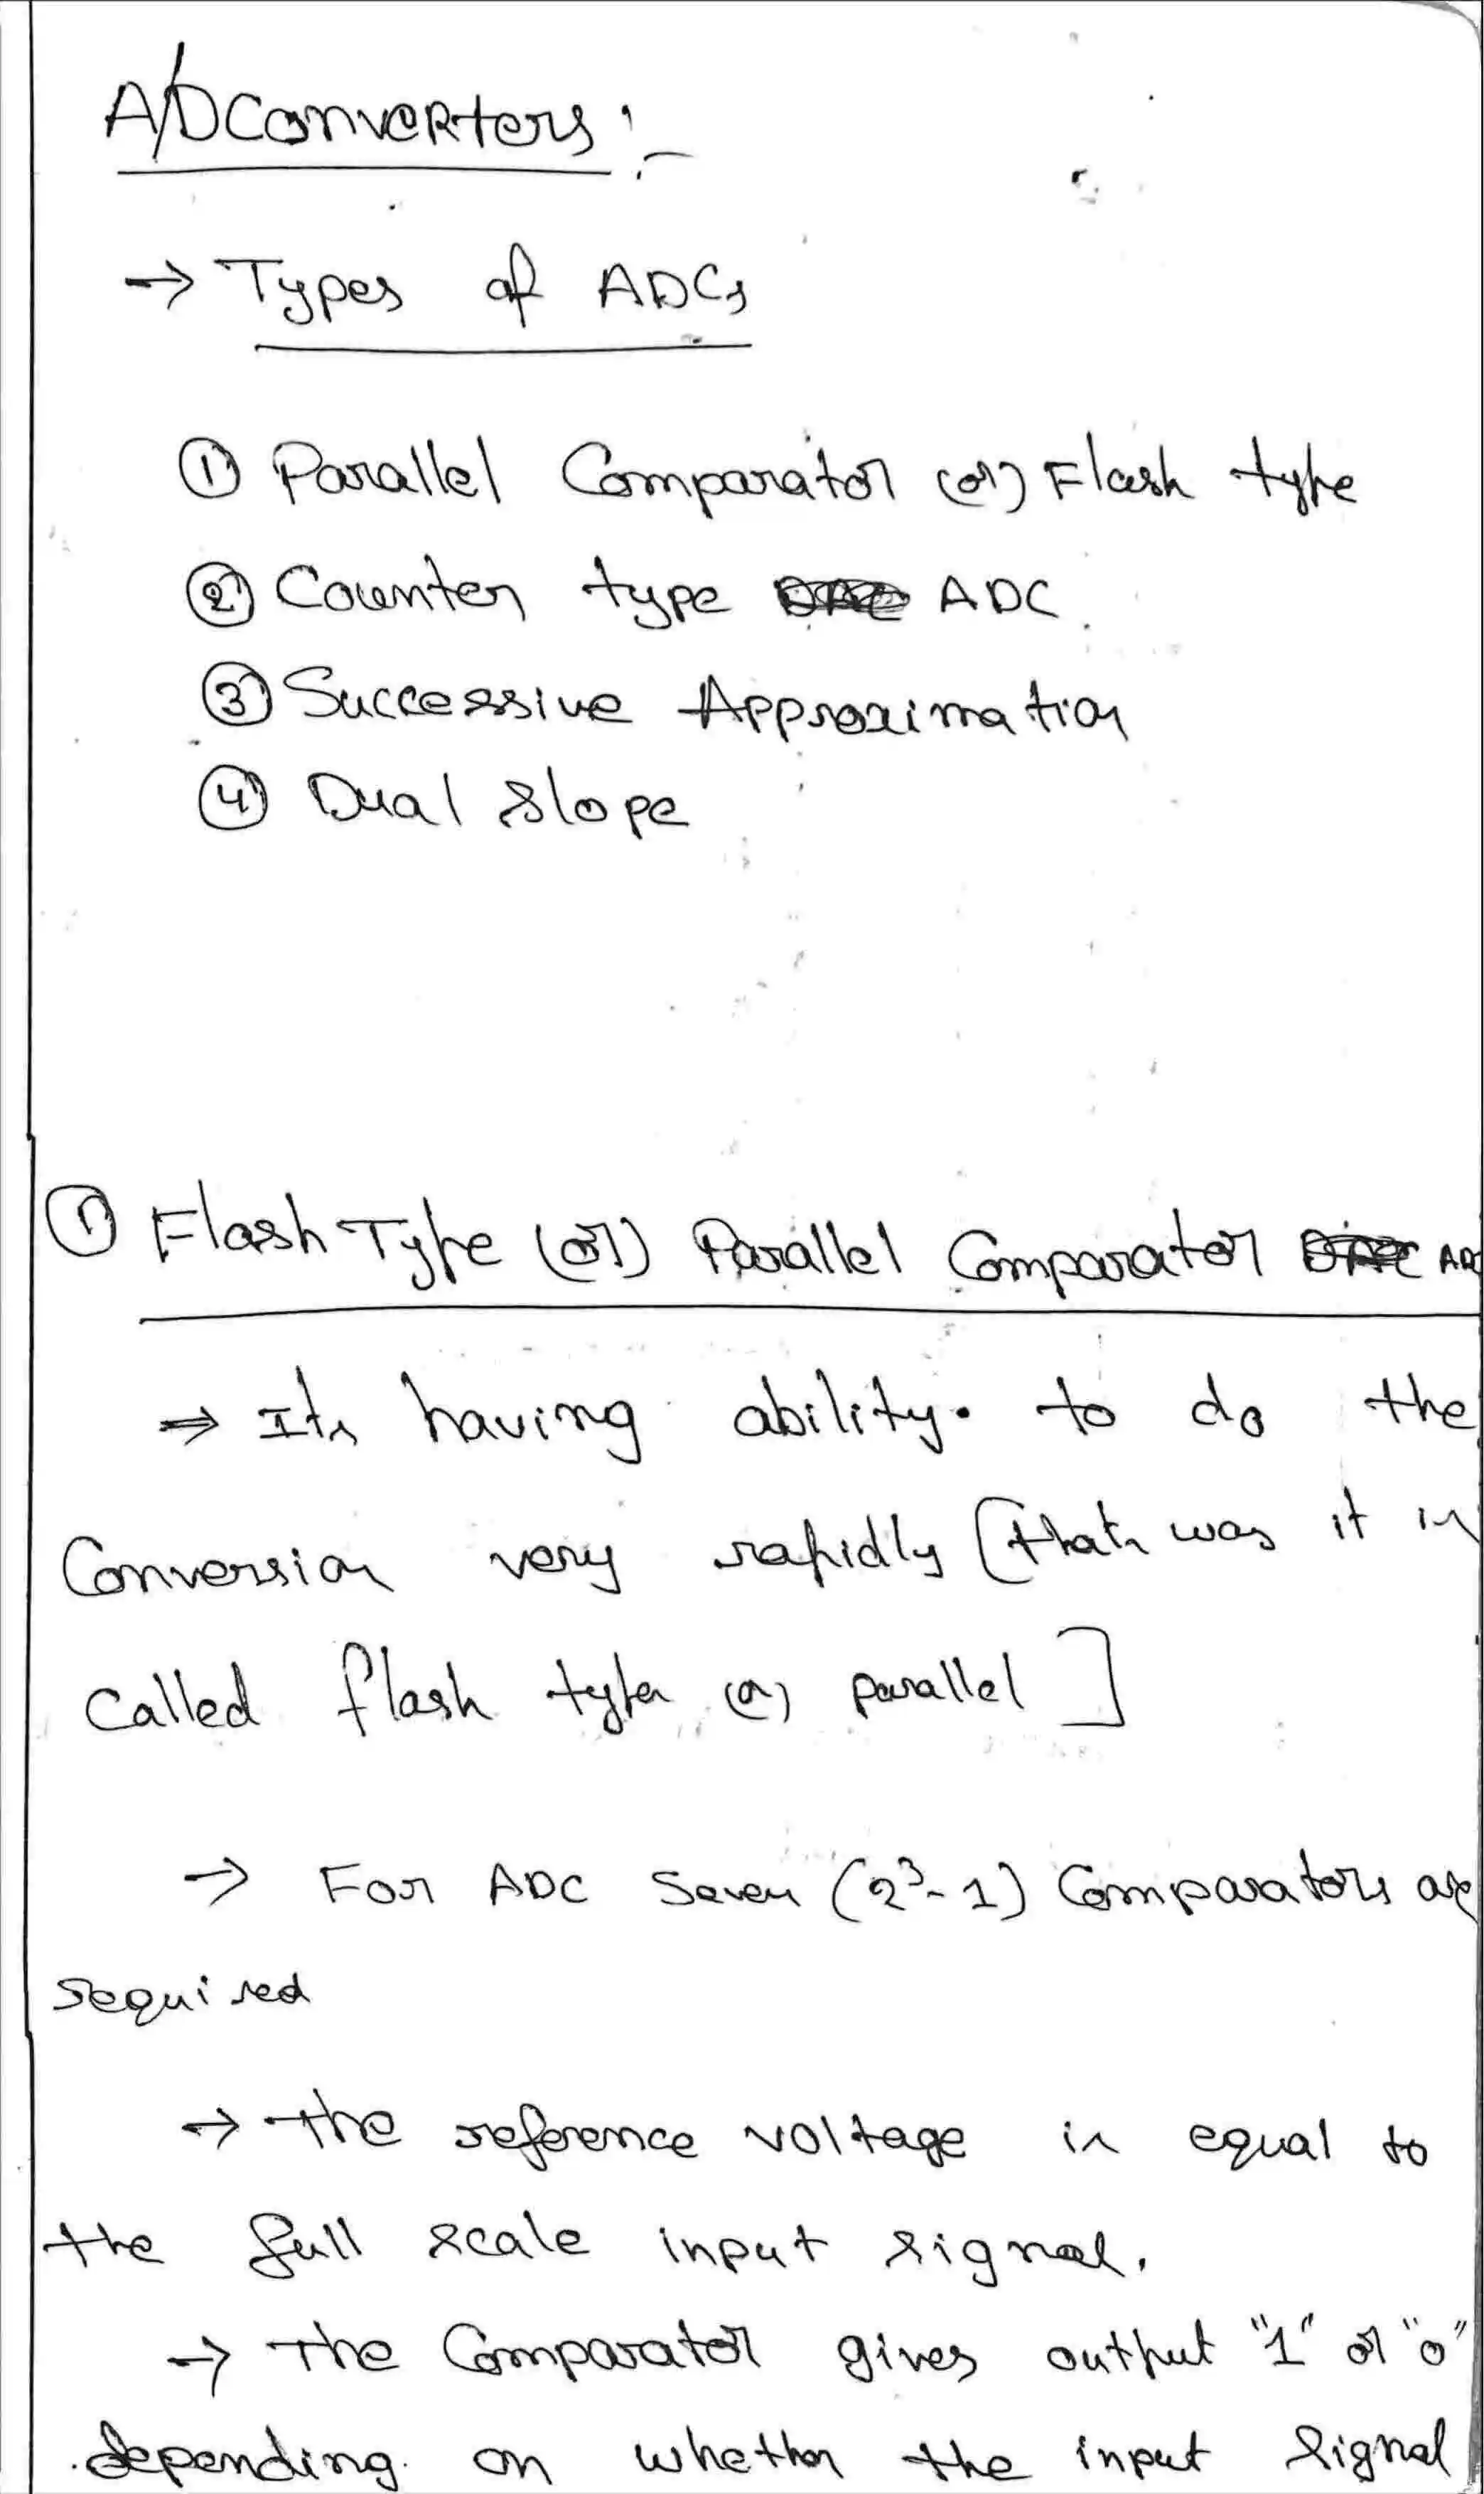 A/D Converters :-
→ Types of ADCs
① Parallel Comparator (or) Flash type
② Counter type ADC
③ Successive Approximation
④ Dual slope
① Flash Type (or) Parallel Comparator
⇒ Its having ability to do the
Conversion very rapidly [thats was it is
called flash type (or) parallel]
→ For ADC Seven (2³-1) Comparators are
required
→ The reference voltage is equal to
the full scale input signal.
→ The Comparator gives output "1" or "0"
depending on whether the input signal